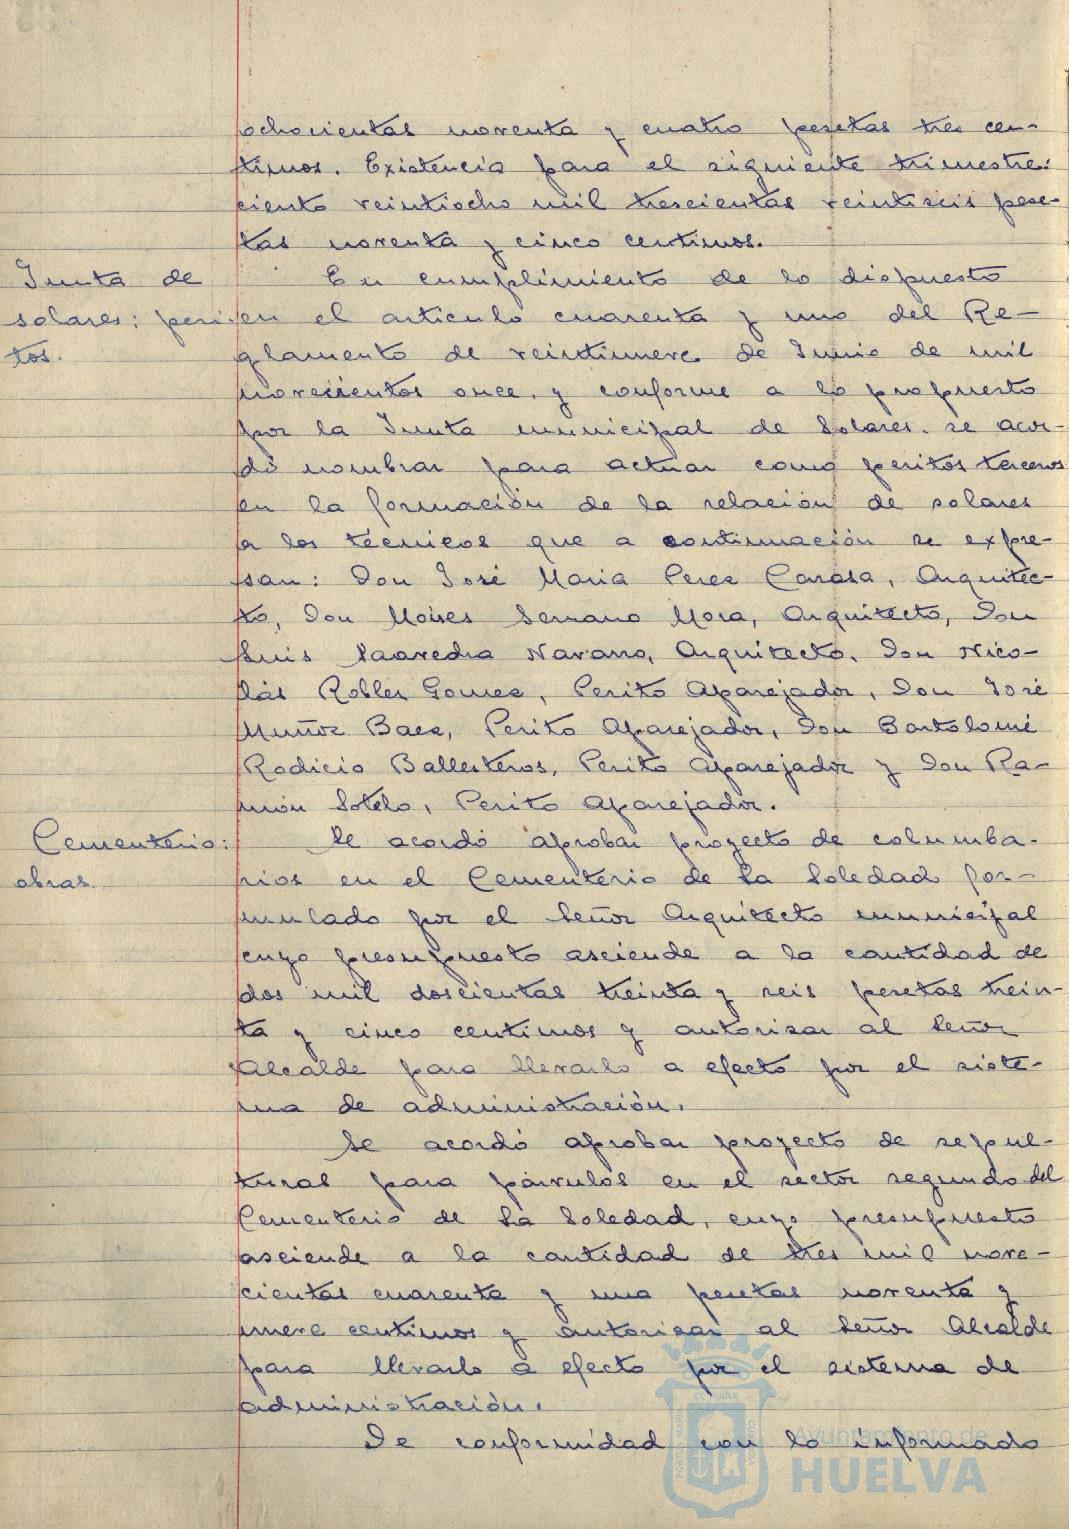 ochocientas noventa y cuatro pesetas tres cen-
timos. Existencia para el siguiente trimestre:
ciento veintiocho mil trescientas veintiseis pese-
tas noventa y cinco centimos.
Junta de
solares: peri-
tos.
En cumplimiento de lo dispuesto
en el articulo cuarenta y uno del Re-
glamento de veintinueve de Junio de mil
novecientos once, y conforme a lo propuesto
por la Junta municipal de Solares. se acor-
dó nombrar para actuar como peritos terceros
en la formación de la relación de solares
a los técnicos que a continuación se expre-
san: Don José Maria Perez Carasa, Arquitec-
to, Don Moises Serrano Mora, Arquitecto, Don
Luis Saavedra Navarro, Arquitecto, Don Nico-
lás Robles Gomez, Perito Aparejador, Don José
Muñoz Baez, Perito Aparejador, Don Bartolomé
Rodicio Ballesteros, Perito Aparejador y Don Ra-
món Sotelo, Perito Aparejador.
Cementerio:
obras.
Se acordó aprobar proyecto de columba-
rios en el Cementerio de La Soledad for-
mulado por el Señor Arquitecto municipal
cuyo presupuesto asciende a la cantidad de
dos mil doscientas treinta y seis pesetas trein-
ta y cinco centimos y autorizar al Señor
Alcalde para llevarlo a efecto por el siste-
ma de administración.
Se acordó aprobar proyecto de sepul-
turas para párvulos en el sector segundo del
Cementerio de La Soledad, cuyo presupuesto
asciende a la cantidad de tres mil nove-
cientas cuarenta y una pesetas noventa y
nueve centimos y autorizar al Señor Alcalde
para llevarlo a efecto por el sistema de
administración.
De conformidad con lo informado
Ayuntamiento de
HUELVA